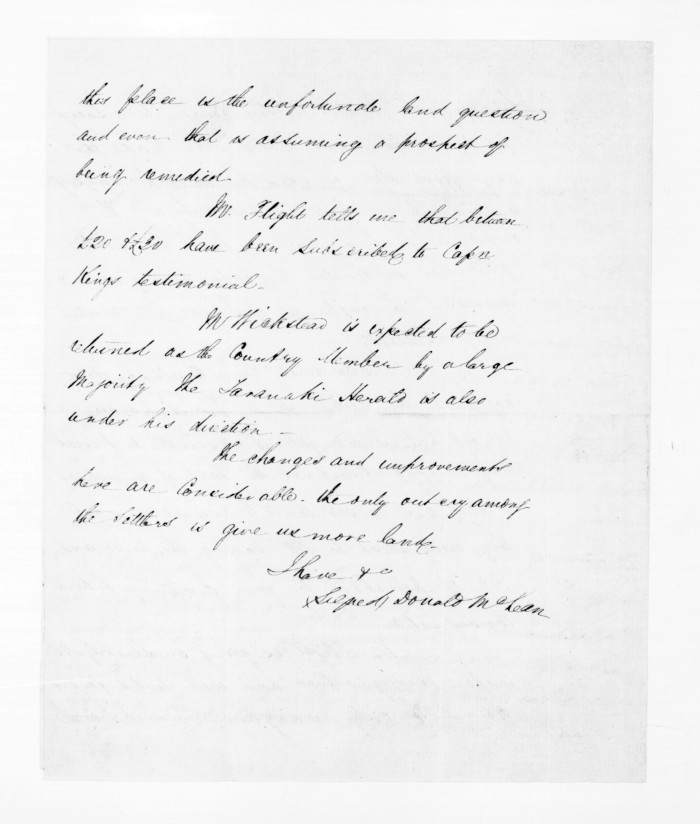 this place is the unfortunate land question
and even that is assuming a prospect of
being remedied.
Mr. Flight tells me that between
£20 & £30 have been subscribed to Capn
Kings testimonial.
Mr Wickstead is expected to be
returned as the Country Member by a large
Majority the Taranaki Herald is also
under his direction —
The changes and improvements
here are Considerable. the only outcry among
the Settlers is give us more land.
I have &c
(Signed) Donald McLean